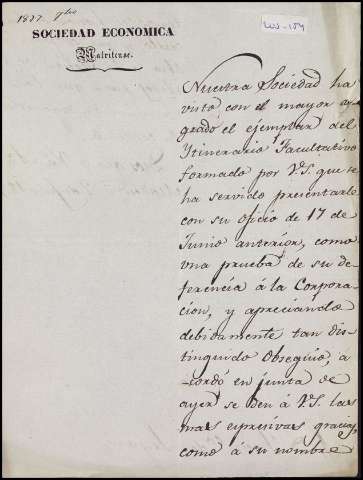 SOCIEDAD ECONOMICA
Matritense.
Nuestra Sociedad ha
visto con el mayor a-
grado el ejemplar del
Itinerario Facultativo
formado por V.S. que se
ha servido presentarle
con su oficio de 17 de
Junio anterior, como
una prueba de su de-
ferencia á la Corpora-
cion, y apreciando
debidamente tan dis-
tinguido Obsequio, a-
cordó en junta de
ayer se den á V.S. las
mas espresivas gracias,
como á su nombre